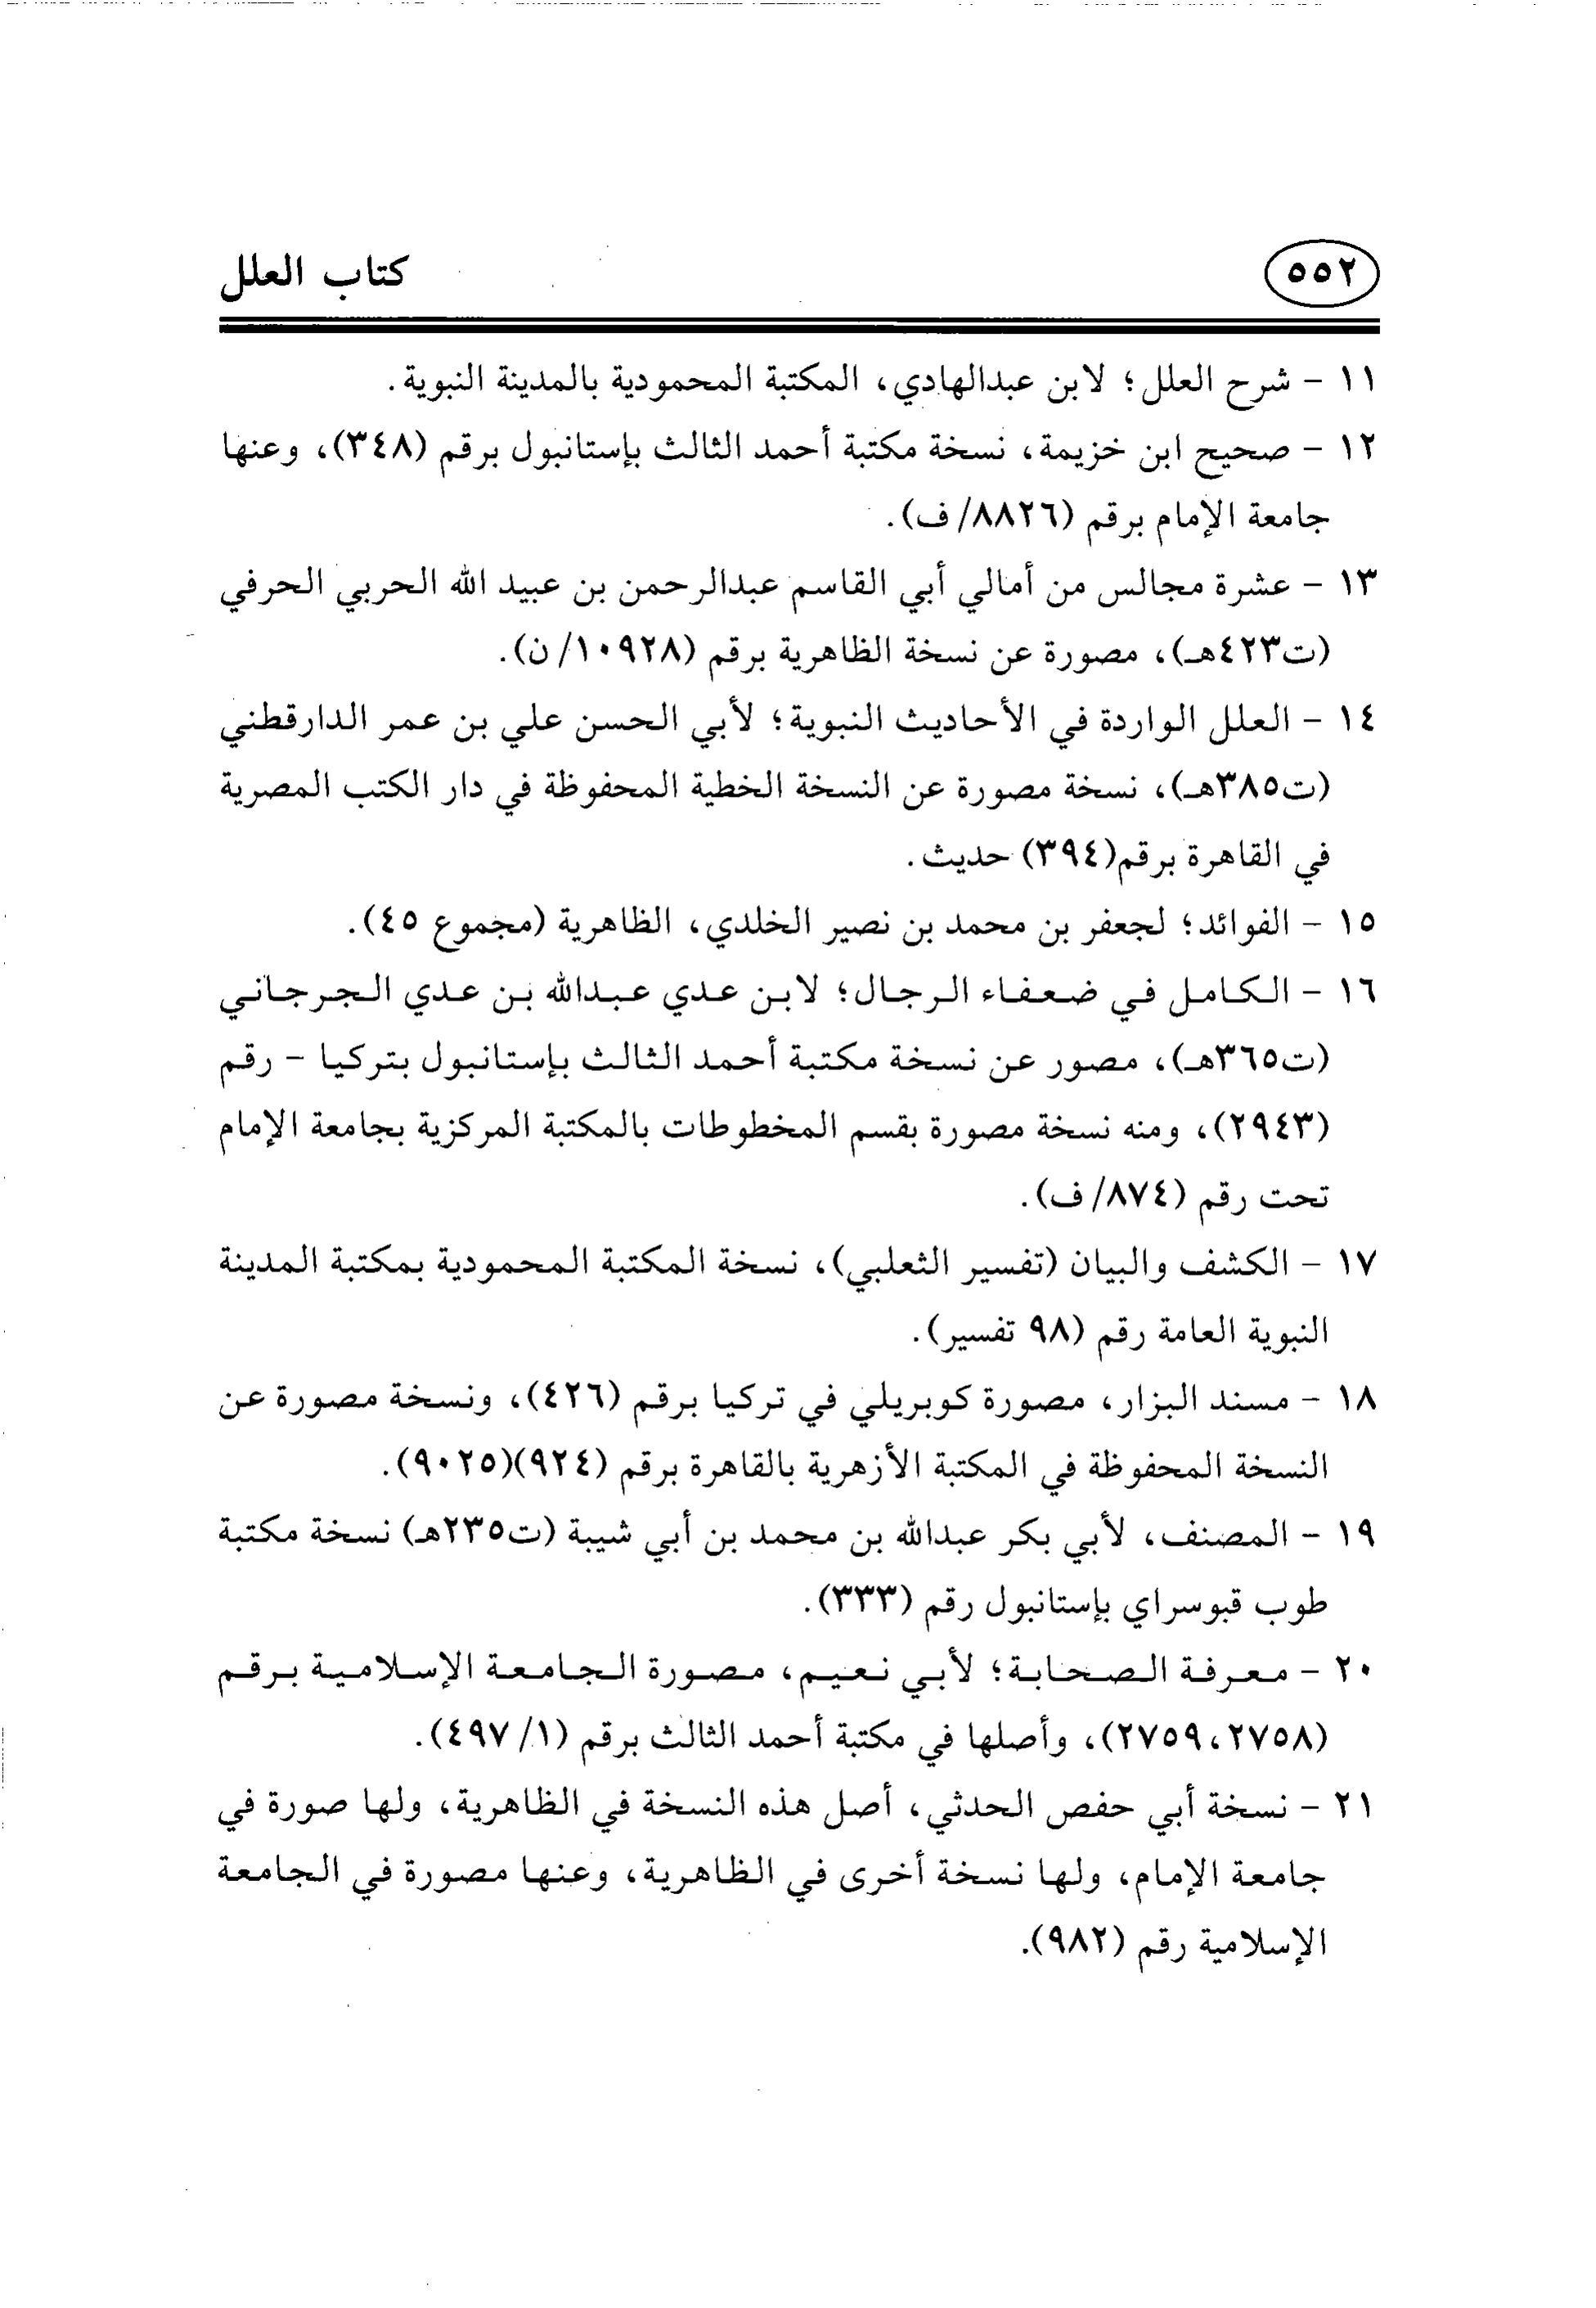 ٥٥٢ كتاب العلل
١١ - شرح العلل؛ لابن عبدالهادي، المكتبة المحمودية بالمدينة النبوية.
١٢ - صحيح ابن خزيمة، نسخة مكتبة أحمد الثالث بإستانبول برقم (٣٤٨)، وعنها
جامعة الإمام برقم (٨٨٢٦/ ف).
١٣ - عشرة مجالس من أمالي أبي القاسم عبدالرحمن بن عبيد الله الحربي الحرفي
(ت٤٢٣هـ)، مصورة عن نسخة الظاهرية برقم (١٠٩٢٨/ ن).
١٤ - العلل الواردة في الأحاديث النبوية؛ لأبي الحسن علي بن عمر الدارقطني
(ت٣٨٥هـ)، نسخة مصورة عن النسخة الخطية المحفوظة في دار الكتب المصرية
في القاهرة برقم(٣٩٤) حديث.
١٥ - الفوائد؛ لجعفر بن محمد بن نصير الخلدي، الظاهرية (مجموع ٤٥).
١٦ - الكامل في ضعفاء الرجال؛ لابن عدي عبدالله بن عدي الجرجاني
(ت٣٦٥هـ)، مصور عن نسخة مكتبة أحمد الثالث بإستانبول بتركيا - رقم
(٢٩٤٣)، ومنه نسخة مصورة بقسم المخطوطات بالمكتبة المركزية بجامعة الإمام
تحت رقم (٨٧٤/ ف).
١٧ - الكشف والبيان (تفسير الثعلبي)، نسخة المكتبة المحمودية بمكتبة المدينة
النبوية العامة رقم (٩٨ تفسير).
١٨ - مسند البزار، مصورة كوبريلي في تركيا برقم (٤٢٦)، ونسخة مصورة عن
النسخة المحفوظة في المكتبة الأزهرية بالقاهرة برقم (٩٢٤)(٩٠٢٥).
١٩ - المصنف، لأبي بكر عبدالله بن محمد بن أبي شيبة (ت٢٣٥هـ) نسخة مكتبة
طوب قبوسراي بإستانبول رقم (٣٣٣).
٢٠ - معرفة الصحابة؛ لأبي نعيم، مصورة الجامعة الإسلامية برقم
(٢٧٥٨، ٢٧٥٩)، وأصلها في مكتبة أحمد الثالث برقم (١/ ٤٩٧).
٢١ - نسخة أبي حفص الحدثي، أصل هذه النسخة في الظاهرية، ولها صورة في
جامعة الإمام، ولها نسخة أخرى في الظاهرية، وعنها مصورة في الجامعة
الإسلامية رقم (٩٨٢).